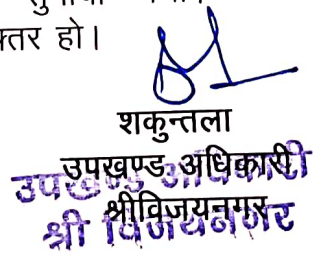 क्तर हो।
शकुन्तला
उपखण्ड अधिकारी
श्रीविजयनगर
उपखण्ड अधिकारी
श्री विजयनगर